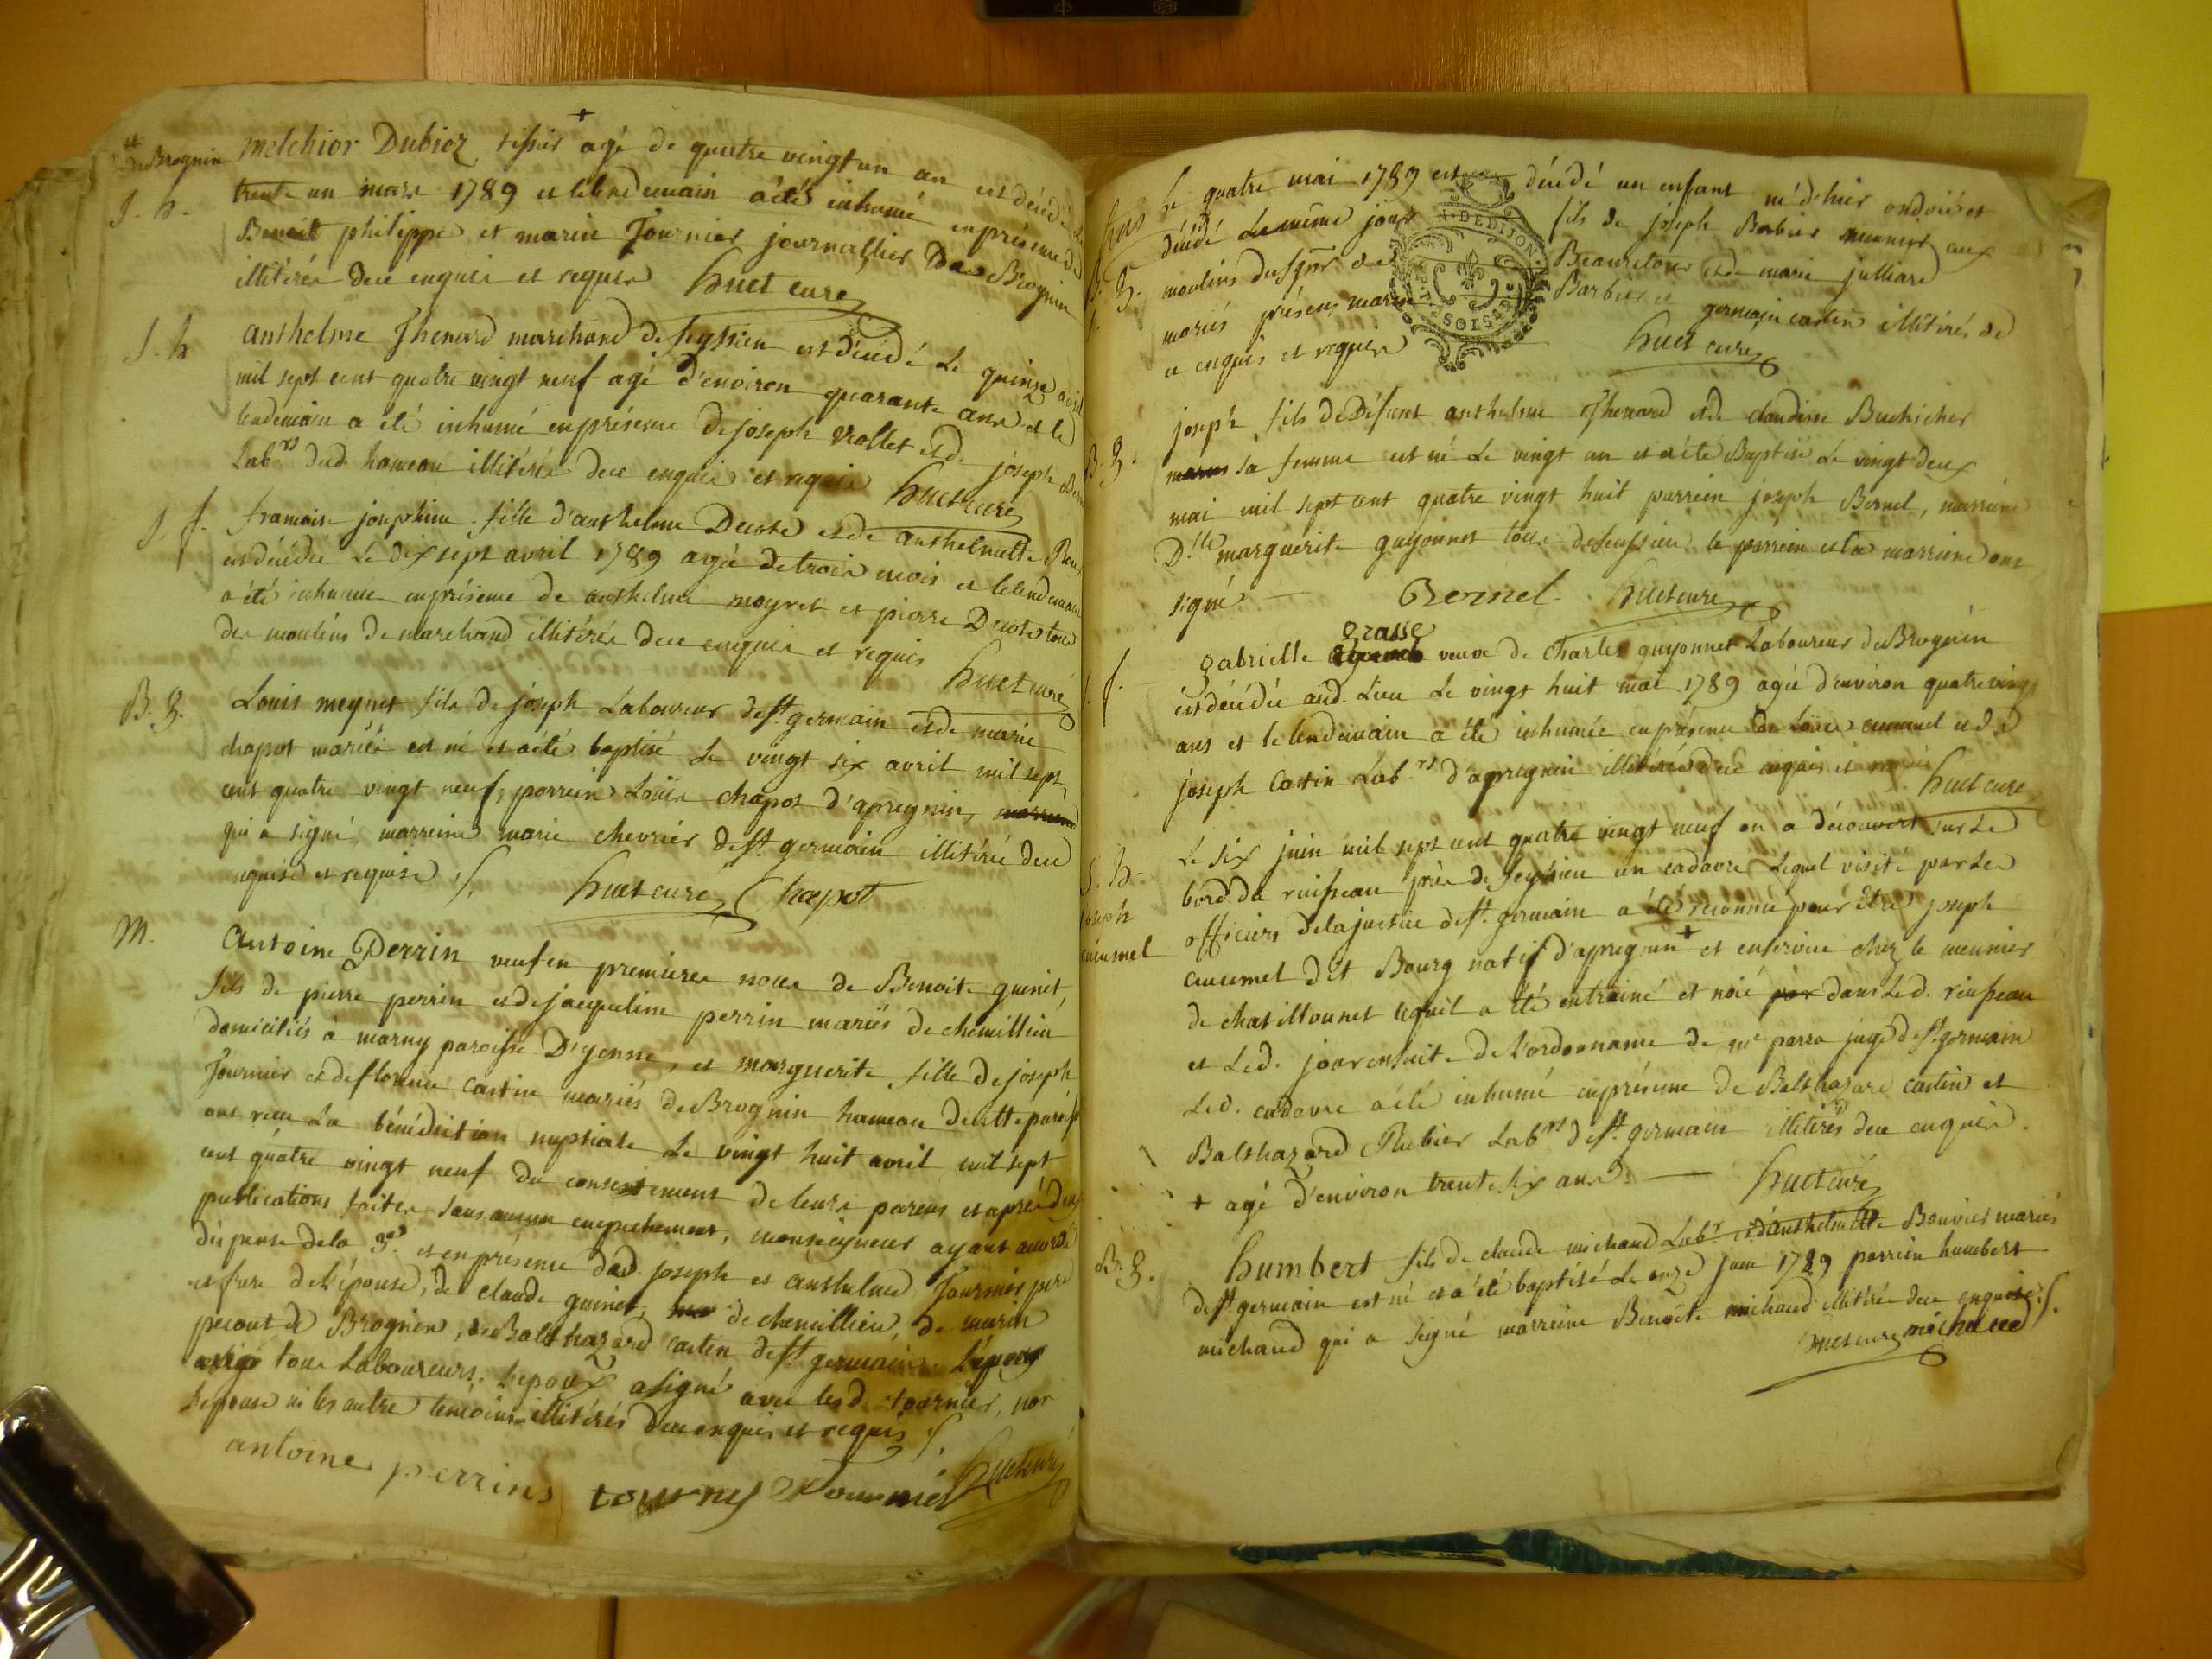 +
de Brognin
S. h.
melchior Dubiez tissier agé de quatre vingt un an est décédé le
trente un mars 1789 et lelendemain aété inhumé enprésence de
Benoit philippe et marin Fournier journallier De Brognin
illitérés dece enquis et requis huet curé
S. h
anthelme Thenard marchand de seyssieu est décédé Le quinze avril
mil sept cent quatre vingt neuf agé d'environ quarante ans et le
lendemain a été inhumé enprésence de joseph Vrollet et de joseph
Lab.rs dud. hameau illitérés dece enquis et requis huet curé
S. f.
francoise josephine fille d'anthelme Decote et de anthelmette
est décédée Le dixsept avril 1789 agée de trois mois et lelendemain
a été inhumée enprésence de anthelme moyret et pierre Decote tous
des moulins de marchand illitérés dece enquis et requis huet curé
B. G.
Louis meynet fils de joseph Laboureur de st. germain et de marie
chapot mariés est né et aété baptisé Le vingt six avril mil sept
cent quatre vingt neuf, parrein Louis chapot d'apregnin,
qui a signé, marreine marie chevrier de st. germain illitérée dece
enquise et requise ./. huet curé Chapot
M.
Antoine Perrin veuf en premieres noces de Benoite guinet,
fils de pierre perrin et de jacqueline perrin mariés de chemillieu
domiciliés à marny paroisse D'yenne, et marguerite fille de joseph
Fournier et de florence Castin mariés de Brognin hameau de cette paroisse
ont recu La bénédiction nuptiale Le vingt huit avril mil sept
cent quatre vingt neuf du consentement de leurs parens et après deux
publications faites sans aucun empechement, monseigneur ayant accordé
dispense de la 3e. et enprésence dud. joseph et anthelme Fournier pere
et frere de l'épouse, de claude guinet, de chemillieu, de marin
pecout de Brognin, de Balthazard castin de st. germain
tous Laboureurs. Lepoux asigné avec lesd. fournier, non
Lepouse ni les autres témoins illitérés dece enquis et requis ./.
antoine perrins tourny Fournier huet curé
B. G.
Le quatre mai 1789 est décédé un enfant né d'hier ondoié et
décédé Le même jour fils de joseph Barbier meunier aux
moulins du sgnr de Beauretour et de marie julliard
mariés présens marin Barbier et germain castin illitérés de
ce enquis et requis huet curé
B. G.
joseph fils de Défunt anthelme Thenard et de claudine Buchicher
sa femme est né Le vingt un et aété Baptisé Le vingt deux
mai mil sept cent quatre vingt huit parrein joseph Bernel, marreine
D.lle marguerite guyonnet tous de seyssieu le parrein et la marreine ont
signé Bernel huet curé
S. f.
gabrielle grasse veuve de charles guyonnet Laboureur de Brognin
est décédée aud. Lieu Le vingt huit mai 1789 agée d'environ quatre vingt
ans et le lendemain a été inhumée enprésence de Louis cucumel et de
joseph Castin Lab.rs d'apregnin illitérés dece enquis et huet curé
S. h.
joseph
cucumel
Le six juin mil sept cent quatre vingt neuf on a découvert sur Le
bord du ruisseau près de seyssieu un cadavre Lequel visité par Les
officiers dela justice de st. germain a été reconnu pour être joseph
cucumel dit Bourg natif d'apregnin + et enservice chez le meunier
de chatillonnet lequel a été entrainé et noié par dans Led. ruisseau
et Led. jour ensuite de L'ordonnance de me parra juge de st. germain
Led. cadavre aété inhumé enprésence de Balthazard castin et
Balthazard Rubier Lab.rs de st. germain illitérés dece enquis.
+ agé d'environ trente six ans. huet curé
B. G.
humbert fils de claude michaud Lab.r et d'anthelmette Bouvier mariés
de st. germain est né et a été baptisé Le onze juin 1789 parrein humbert
michaud qui a signé marreine Benoite michaud illitérée dece enquise ./.
huet curé michaud